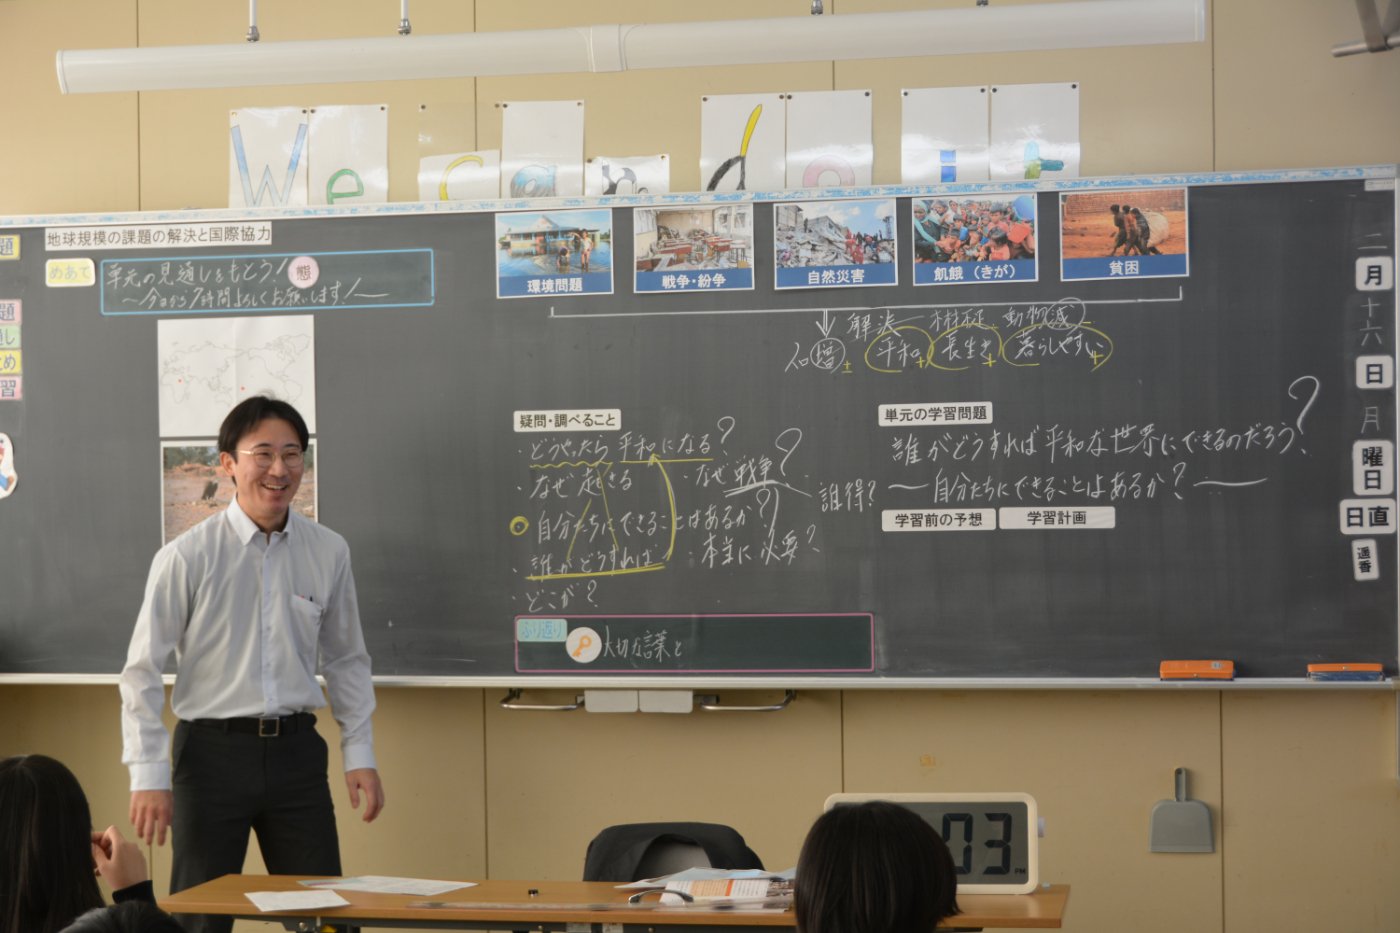 We can do it
題
題
通し
とめ
習
地球規模の課題の解決と国際協力
めあて
単元の見通しをもとう！
態
〜今日から7時間よろしくお願いします！〜
環境問題
戦争・紛争
自然災害
飢餓（きが）
貧困
解決 植林 動物減
人口増± 平和+ 長生き+ 暮らしやすい+
疑問・調べること
・どうやったら平和になる？
・なぜ起きる
・なぜ戦争？
誰得？
自分たちにできることはあるか？
・誰がどうすれば
・本当に必要？
・どこが？
ふり返り
大切な言葉と
単元の学習問題
誰がどうすれば平和な世界にできるのだろう？
〜自分たちにできることはあるか？〜
学習前の予想
学習計画
二
月
十六
日
月
曜日
日直
週番
03
PM